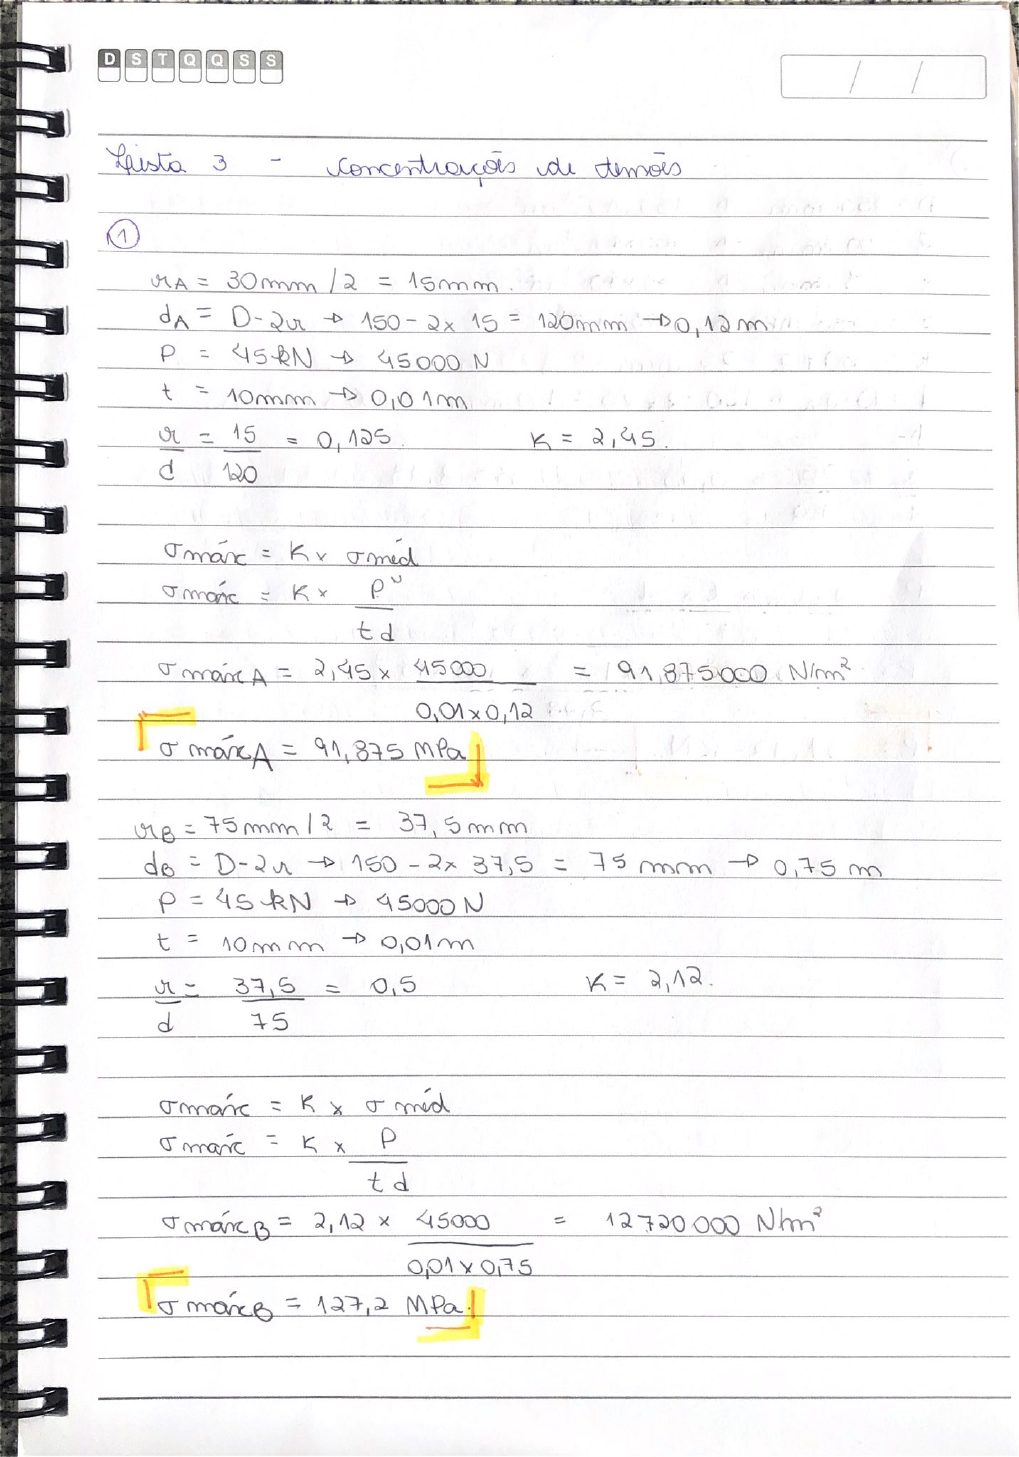 D S T Q Q S S
/ /
Lista 3 - Concentrações de tensões
1
rA = 30mm / 2 = 15mm.
dA = D-2r → 150 - 2x 15 = 120mm → 0,12m
P = 45kN → 45000 N
t = 10mm → 0,01m
r/d = 15/120 = 0,125. K = 2,45.
σmáx = K x σméd
σmáx = K x P/td
σmáxA = 2,45 x 45000/0,01x0,12 = 91,875000 N/m²
σmáxA = 91,875 MPa
rB = 75mm / 2 = 37,5mm
dB = D-2r → 150 - 2x 37,5 = 75 mm → 0,75 m
P = 45kN → 45000 N
t = 10mm → 0,01m
r/d = 37,5/75 = 0,5 K = 2,12.
σmáx = K x σméd
σmáx = K x P/td
σmáxB = 2,12 x 45000/0,01x0,75 = 12720000 N/m²
σmáxB = 127,2 MPa.